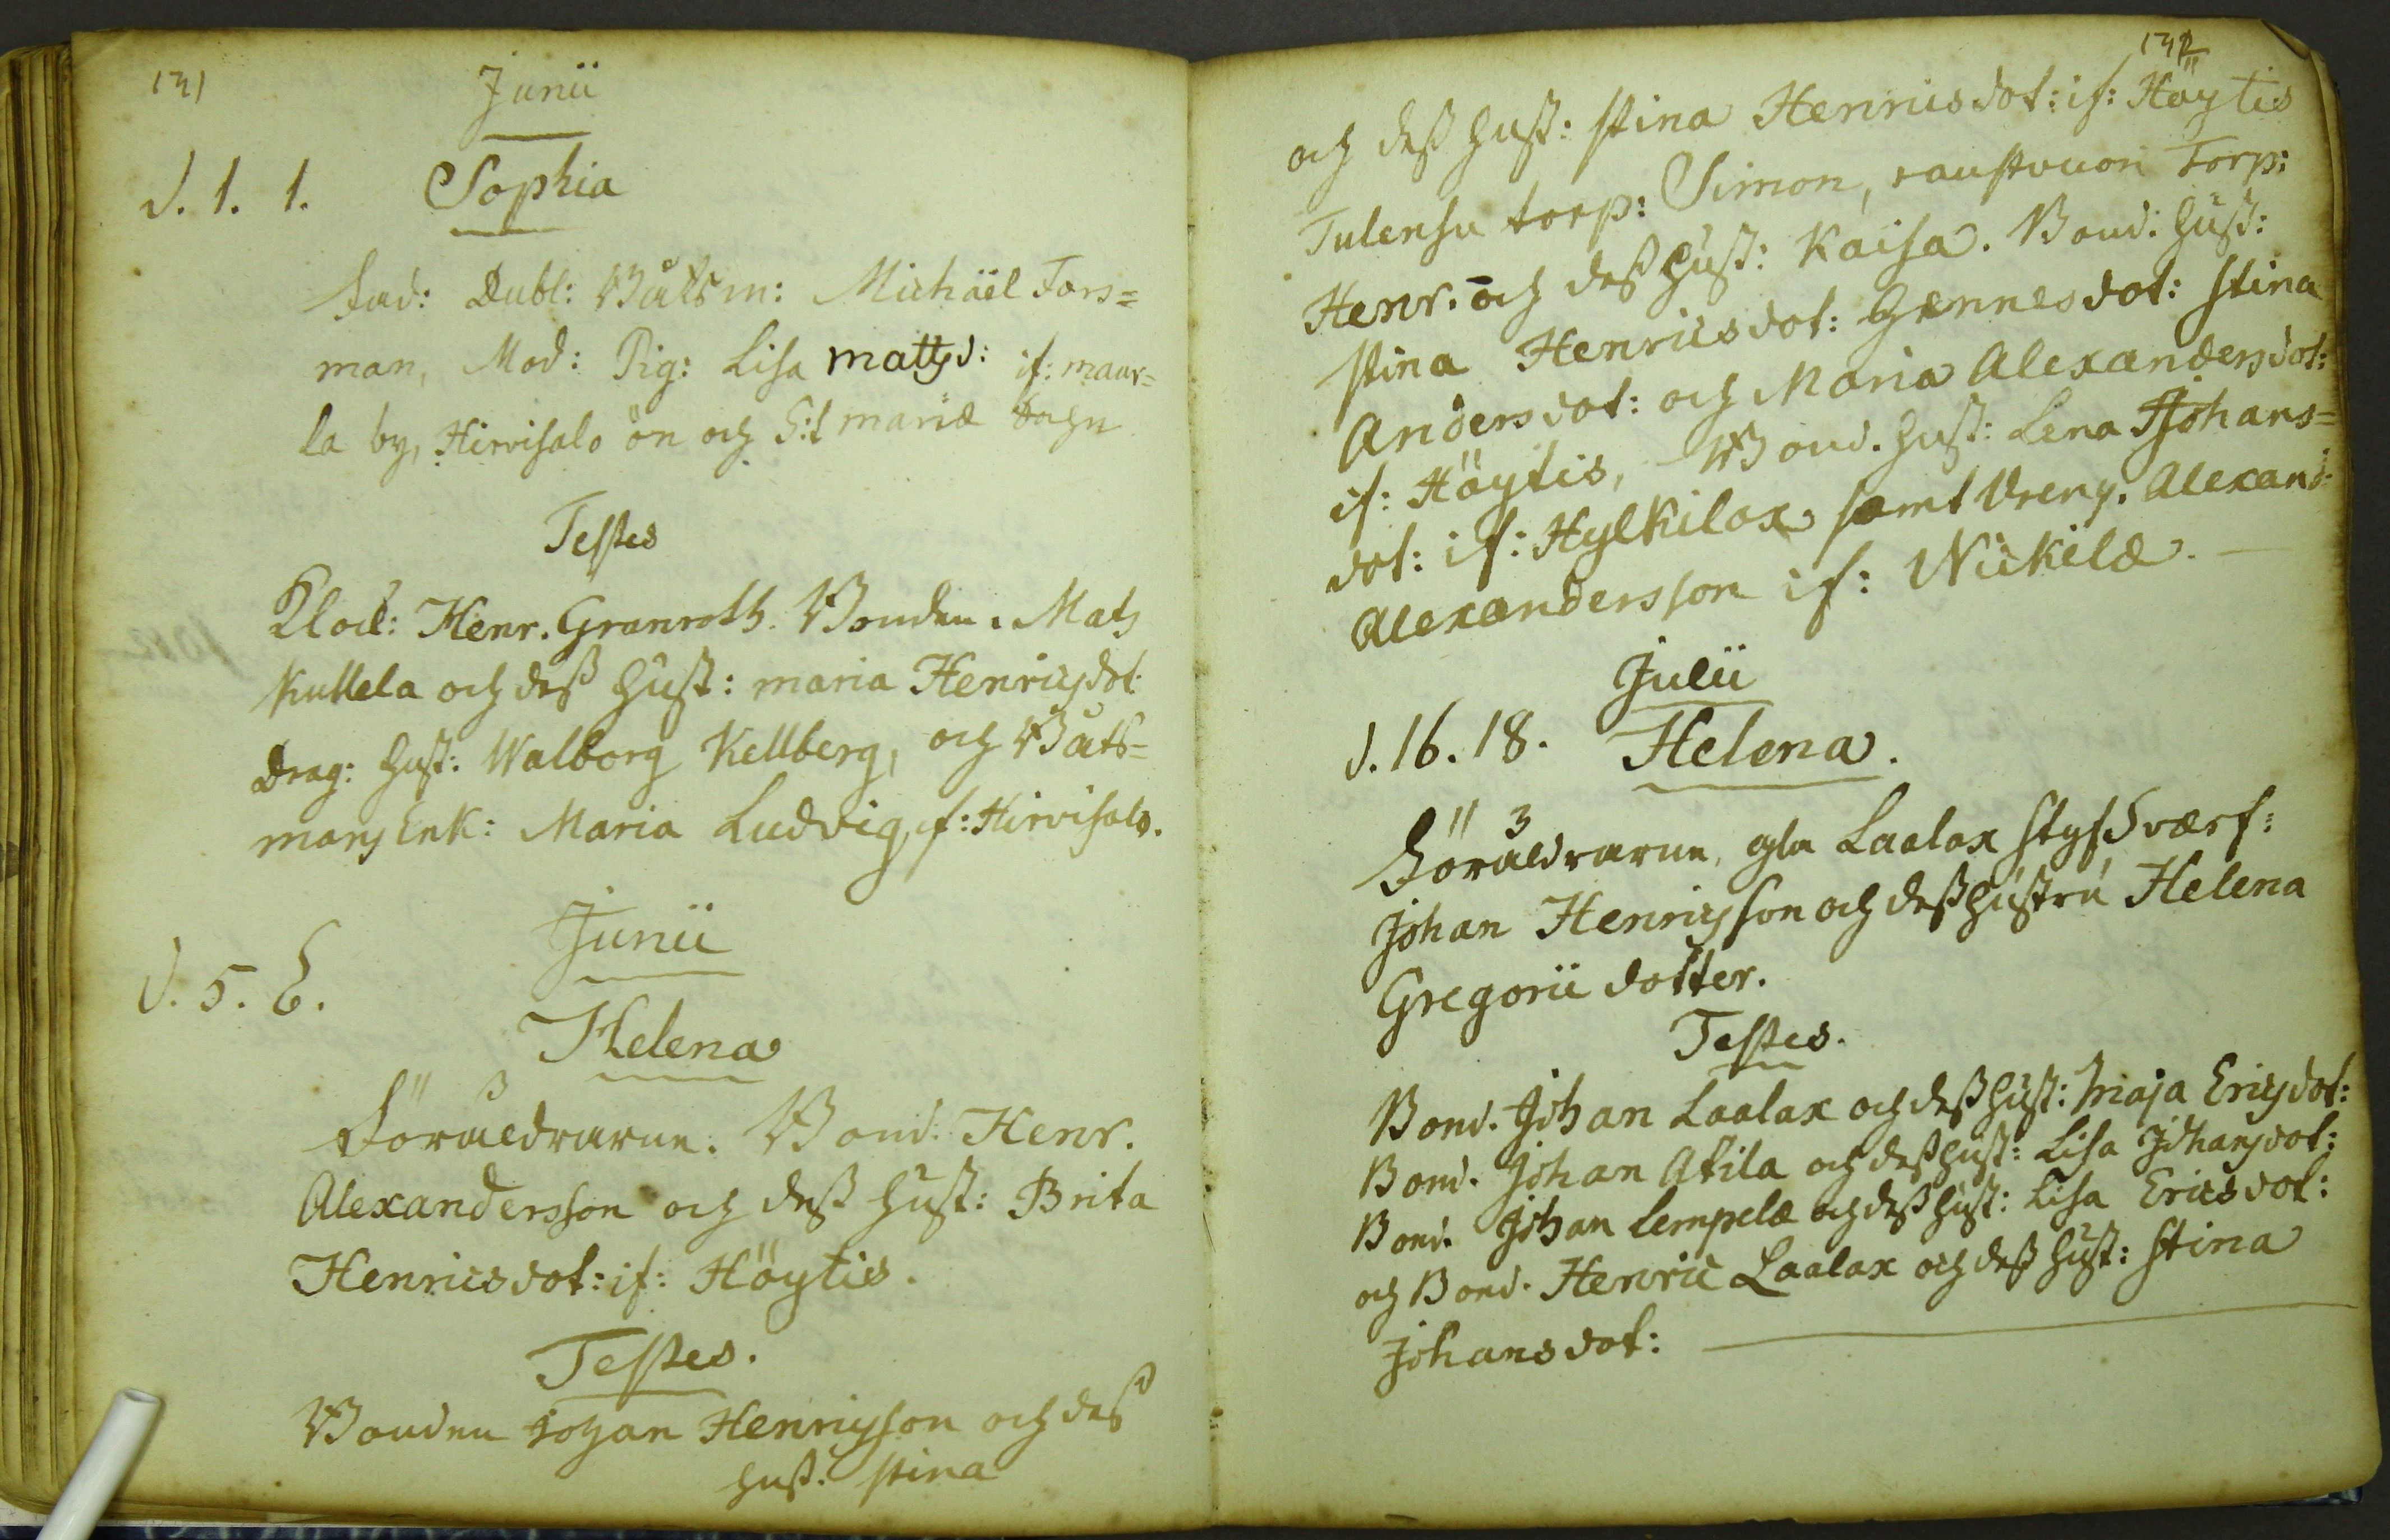 131
Junii
d. 1. 1. Sophia
fad: Dubl: Båtsm: Michäel Fors=
man, Mod: Pig: Lisa mattsd: if: maar=
la by, Hirvisalo ön och S:t mariæ Sochn
Testes
Klock: Henr. Granroth. Bonden. Mats
Kullela och dess Hust: maria Henricsdot:
Drag: hust: Walborg Kellberg, och Båts=
mans Enk: Maria Ludvig, if: Hirvisalo.
Junii
d. 5. 6.
Helena
Föräldrarne. Bond: Henr.
Alexandersson och dess Hust: Brita
Henricsdot: if: Höytis.
Testes.
Bonden Johan Henricsson och dess
hust: Stina
132
och dess hust: Stina Henricsdot: if: Höytis
Tulensu torp: Simon, raustvuori Torp:
Henr. och dess Hust: Kaisa. Bond: Hust:
Stina Henricsdot: Hennes dot: Stina
Andersdot: och Maria Alexandersdot:
if: Höytis, Bond. Hust: Lena Johans=
dot: if: Hylkilax samt Dreng. Alexand:
Alexandersson if: Wickilä.
Julii
d. 16. 18. Helena.
Föräldrarne, gla Laalax
Johan Henricsson och dess Hustru Helena
Gregorii dotter.
Testes.
Bond. Johan Laalax och dess Hust: Maja Ericsdot:
Bond. Johan Atila och dess Hust: Lisa Johansdot:
Bond. Johan Lempelä och dess Hust: Lisa Ericsdot:
och Bond. Henric Laalax och dess Hust: Stina
Johansdot: